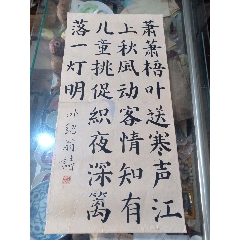 萧萧梧叶送寒声江
上秋风动客情知有
儿童挑促织夜深篱
落一灯明
叶绍翁诗